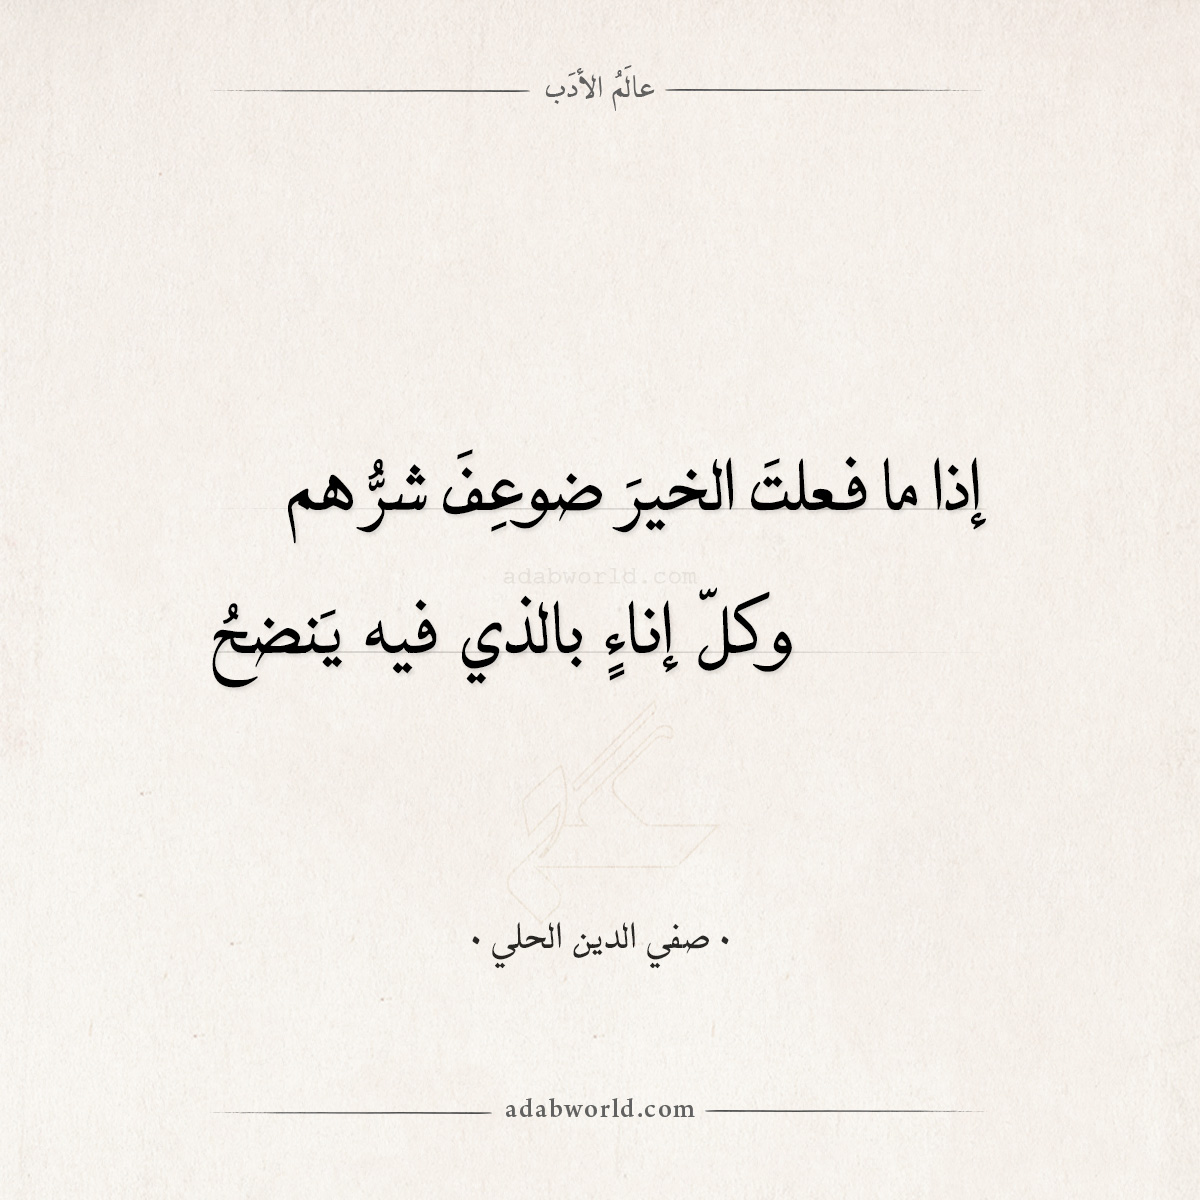 عالَمُ الأدَب
إذا ما فعلتَ الخيرَ ضوعِفَ شرُّهم
adabworld.com
وكلّ إناءٍ بالذي فيه يَنضحُ
• صفي الدين الحلي •
adabworld.com